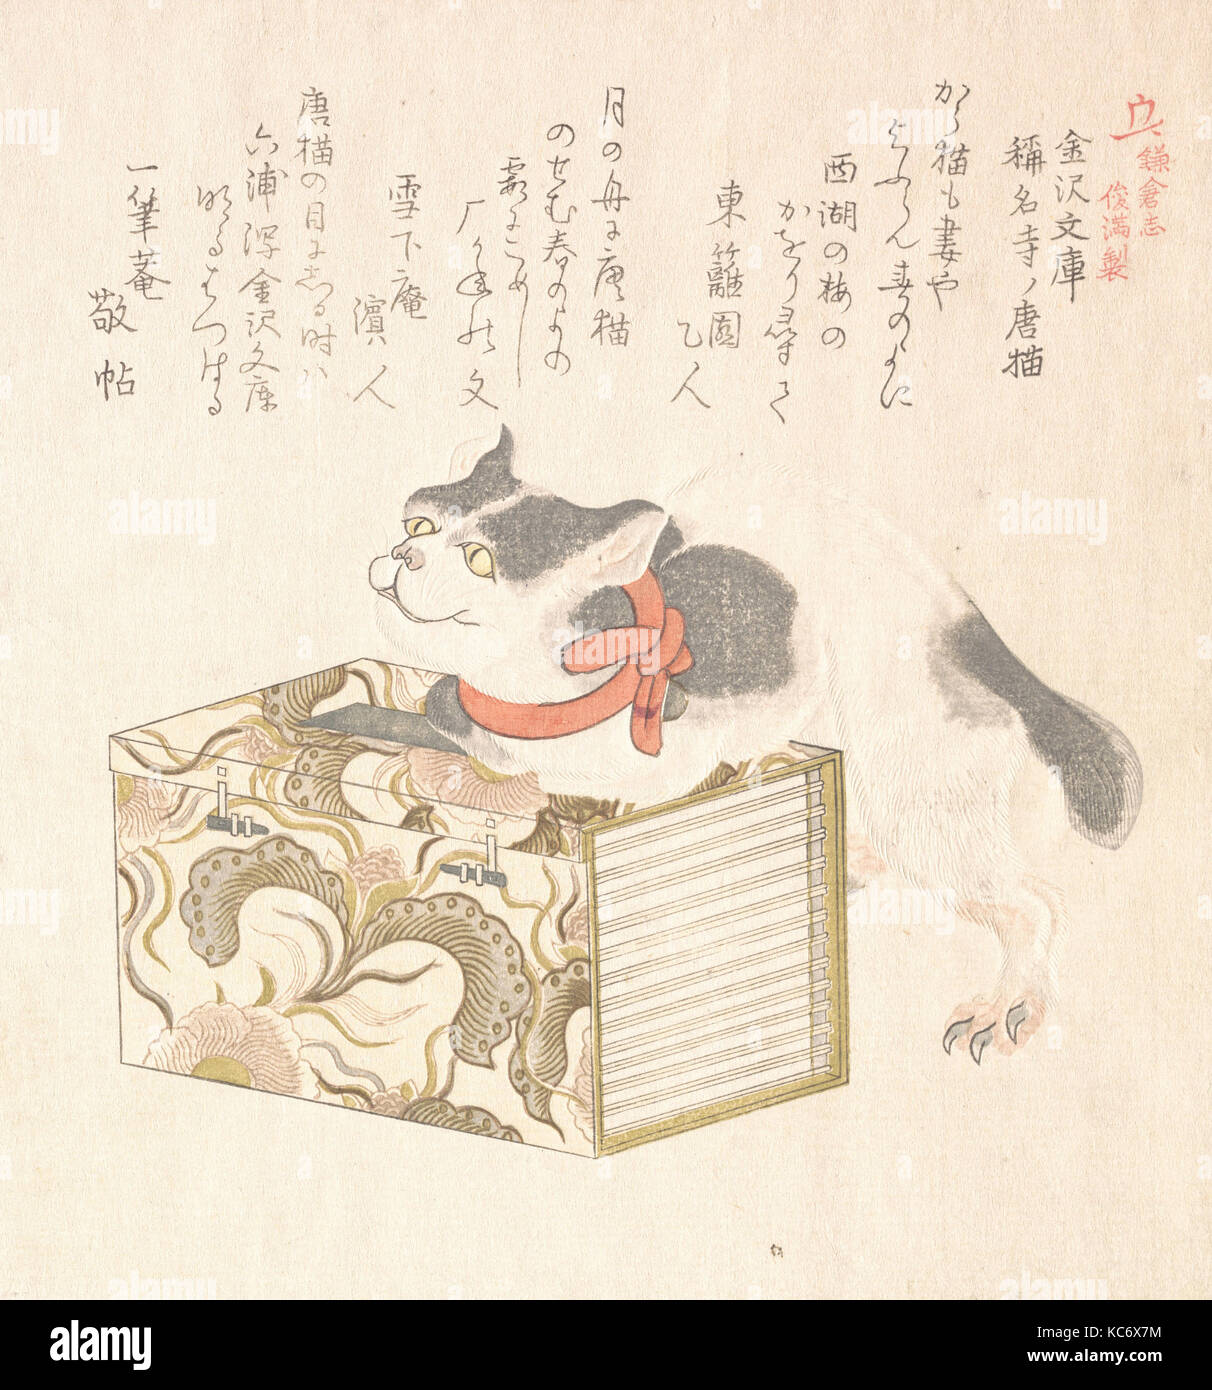 鎌倉志
俊満製
金沢文庫
稱名寺ノ唐猫
から猫も妻や
よふらん春のよに
西湖の梅の
かをり尋て
東籬園
乙人
月の舟に唐猫
のせむ春のよの
雪下庵
濱人
唐猫の目にしる時ハ
六浦潟金沢文庫
一筆菴
敬帖
alamy
Image ID: KC6X7M
www.alamy.com